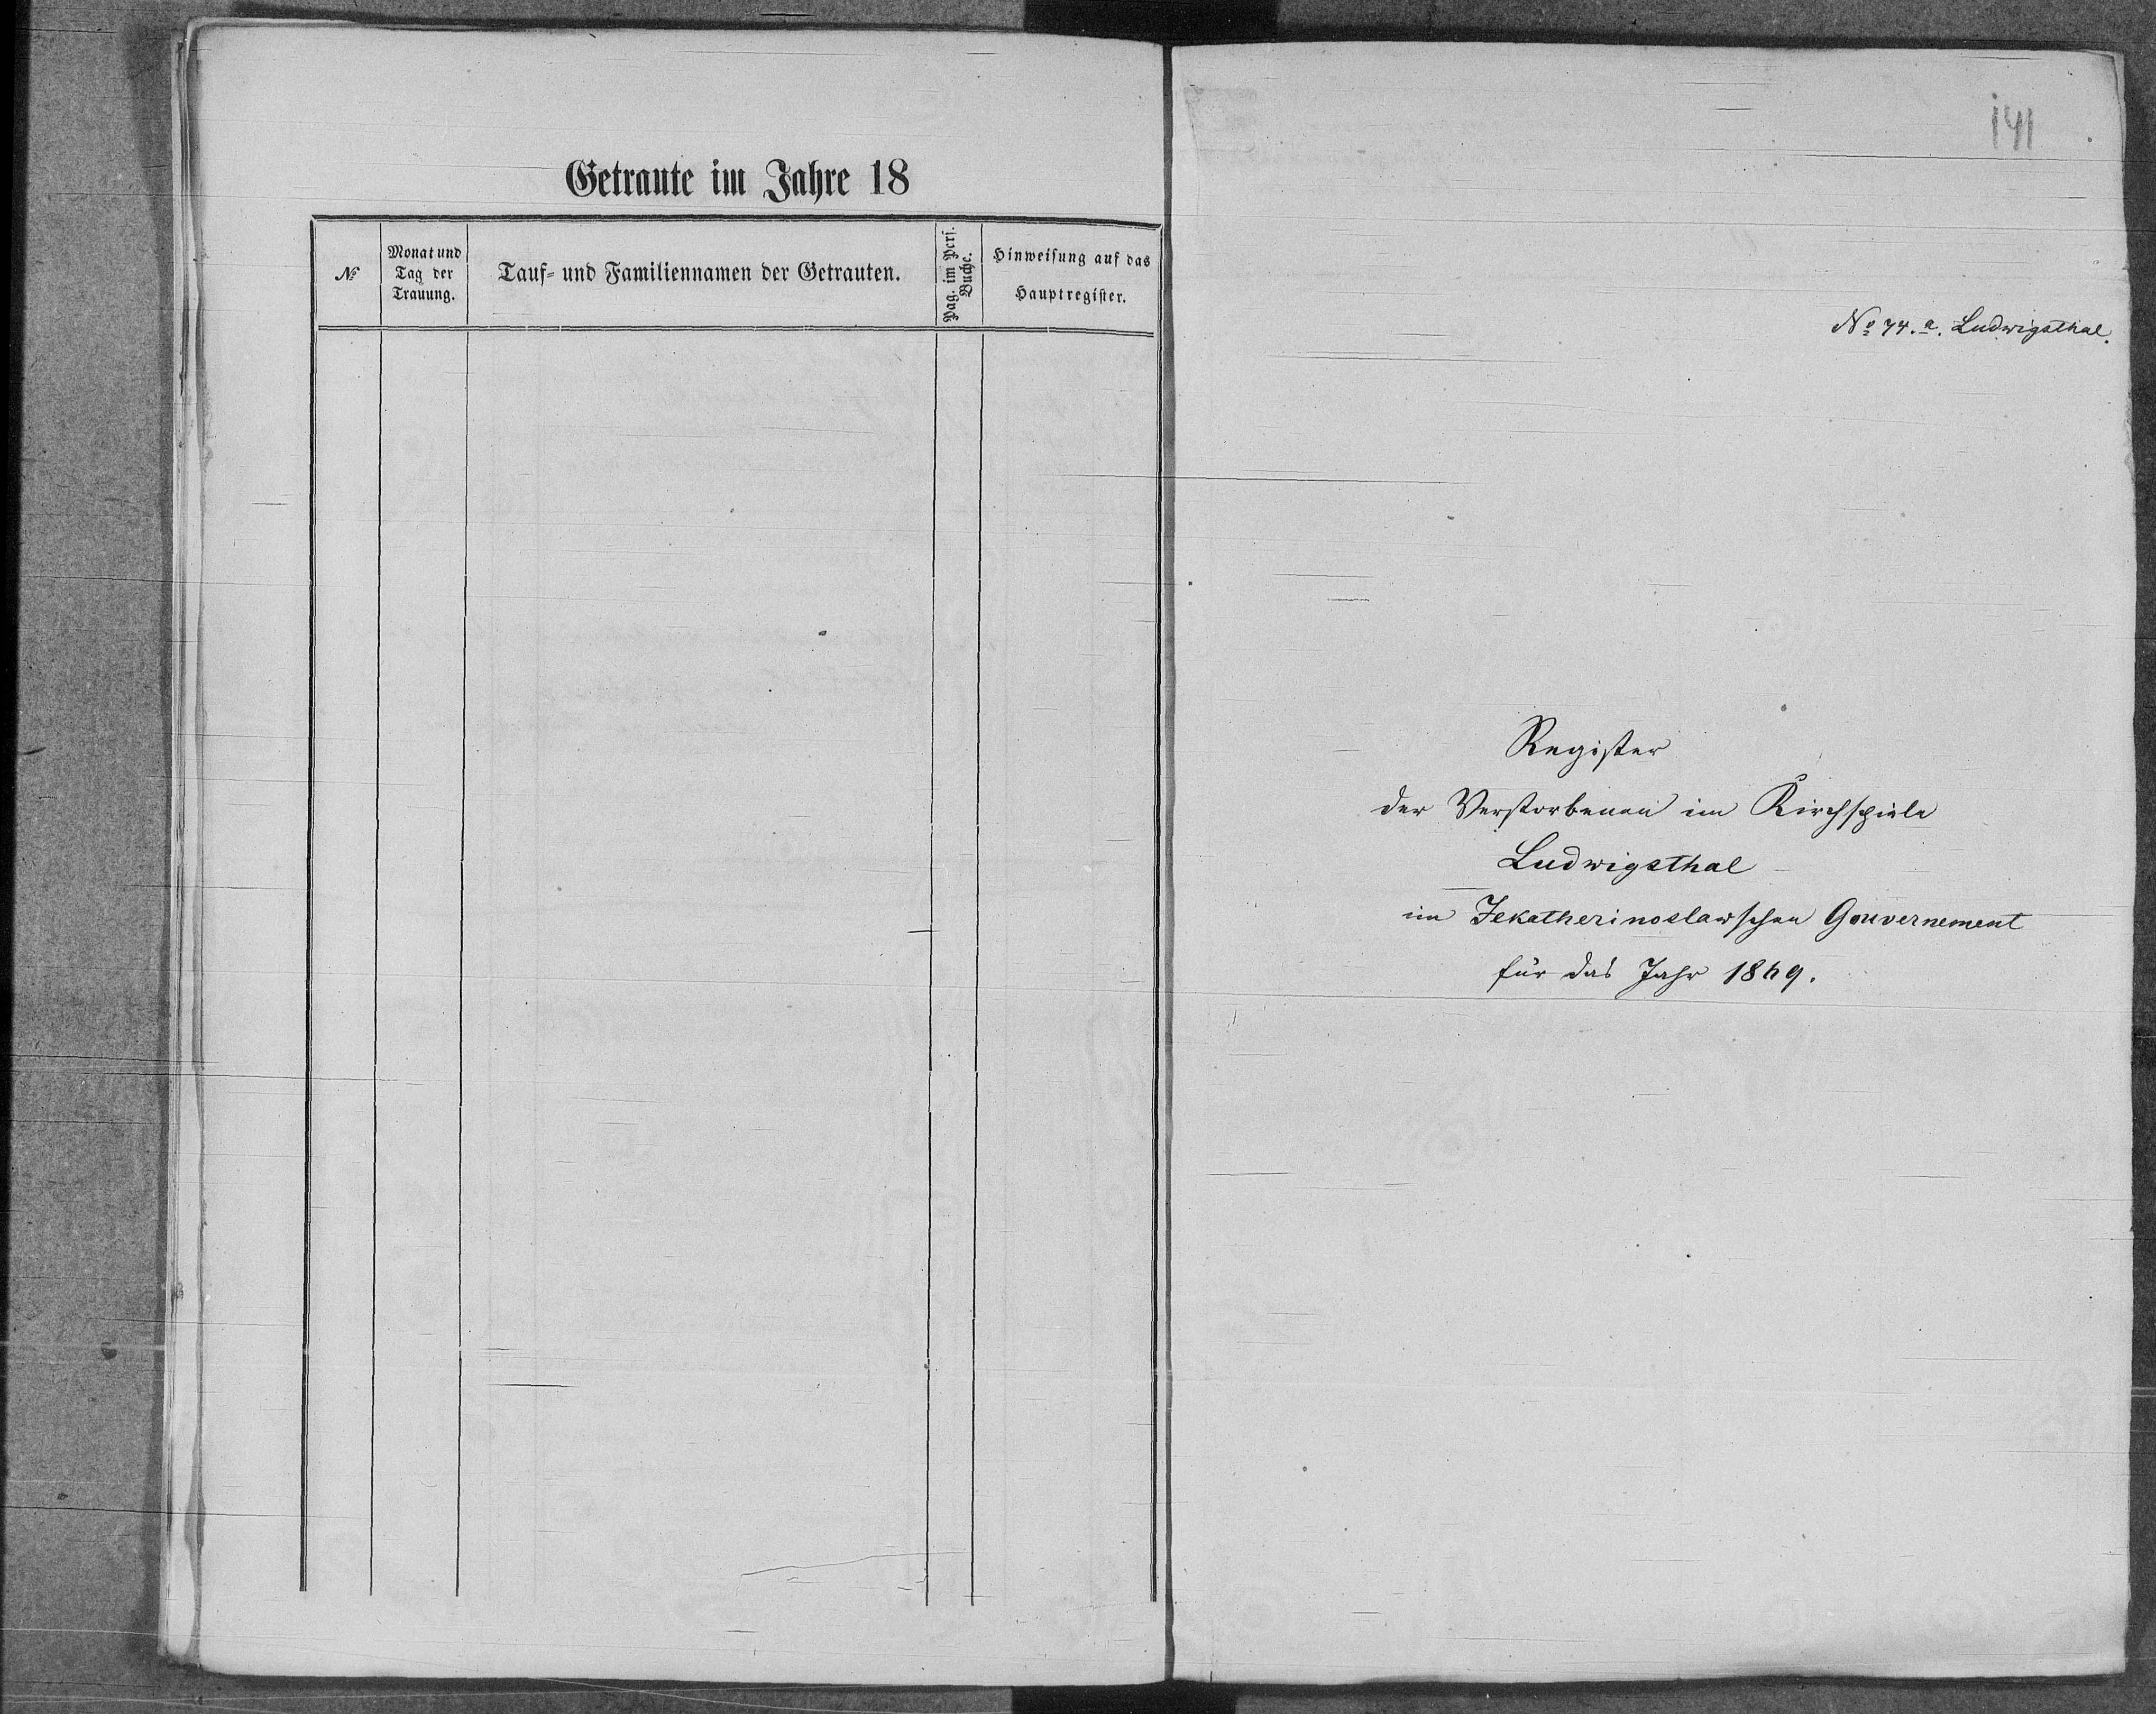 Getraute im Jahre 18
№
Monat und
Tag der
Trauung.
Tauf- und Familiennamen der Getrauten.
Pag. im Pers.
Buche.
Hinweisung auf das
Hauptregister.
141
№ 74. a. Ludwigsthal.
Register
der Verstorbenen im Kirchspiele
Ludwigsthal
im Jekatherinoslawschen Gouvernement
für das Jahr 1869.